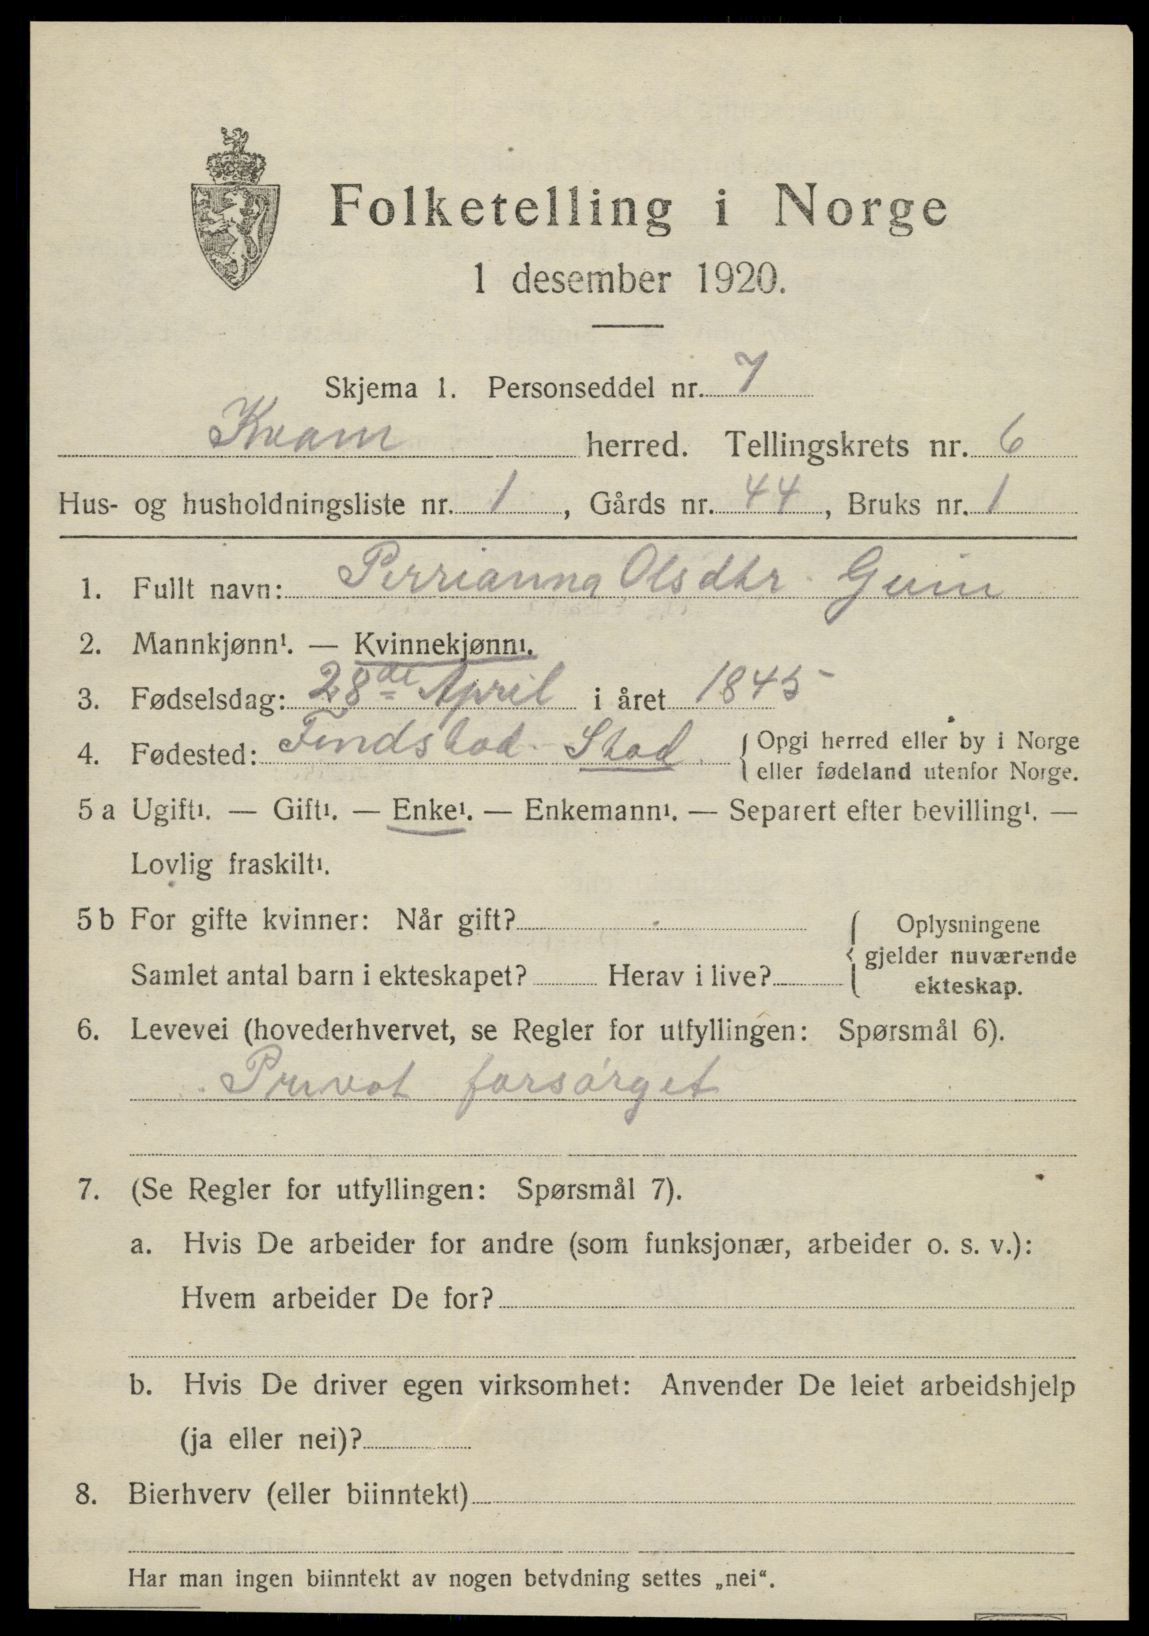 Folketelling i Norge
1 desember 1920.
Skjema 1. Personseddel nr. 7
Kvam herred. Tellingskrets nr. 6
Hus- og husholdningsliste nr. 1, Gårds nr. 44, Bruks nr. 1
1. Fullt navn: Perrianna Olsdtr. Gvin
2. Mannkjønn¹. — Kvinnekjønn¹.
3. Fødselsdag: 28de April i året 1845
4. Fødested: Findstad. Stod. { Opgi herred eller by i Norge
eller fødeland utenfor Norge.
5 a Ugift¹. — Gift¹. — Enke¹. — Enkemann¹. — Separert efter bevilling¹. —
Lovlig fraskilt¹.
5 b For gifte kvinner: Når gift? { Oplysningene
gjelder nuværende
Samlet antal barn i ekteskapet? Herav i live? ekteskap.
6. Levevei (hovederhvervet, se Regler for utfyllingen: Spørsmål 6).
Privat forsørget
7. (Se Regler for utfyllingen: Spørsmål 7).
a. Hvis De arbeider for andre (som funksjonær, arbeider o. s. v.):
Hvem arbeider De for?
b. Hvis De driver egen virksomhet: Anvender De leiet arbeidshjelp
(ja eller nei)?
8. Bierhverv (eller biinntekt)
Har man ingen biinntekt av nogen betydning settes „nei“.